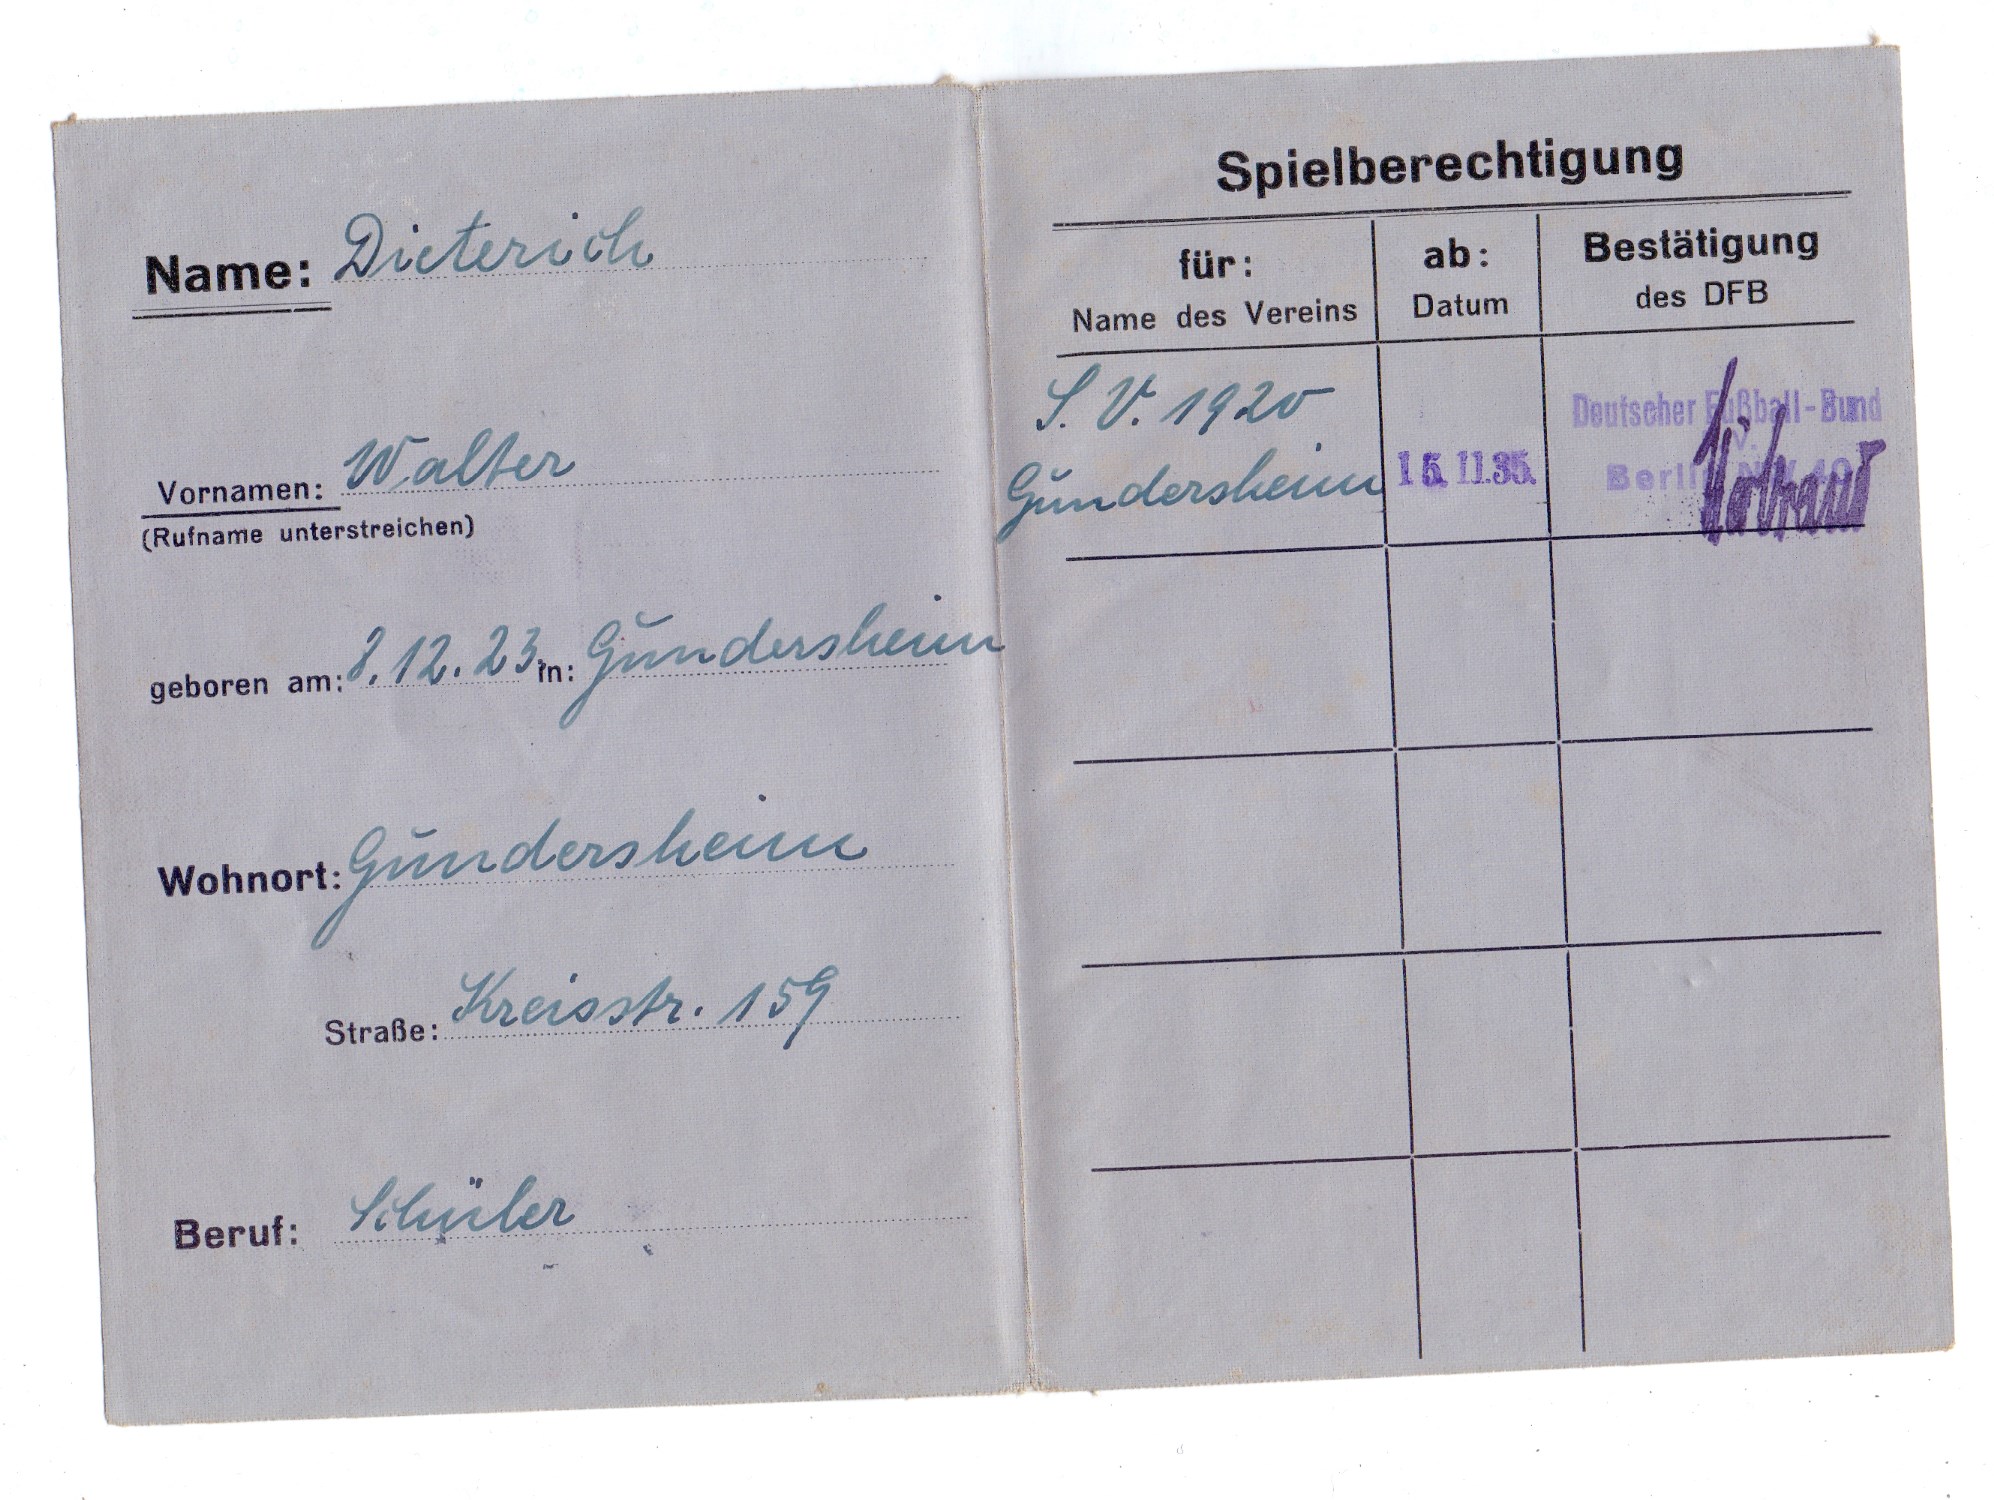 Name: Dieterich
Vornamen: Walter
(Rufname unterstreichen)
geboren am: 8.12.23. in: Gundersheim
Wohnort: Gundersheim
Straße: Kreisstr. 159
Beruf: Schüler
Spielberechtigung
für: ab: Bestätigung
Name des Vereins Datum des DFB
S. V. 1920 Deutscher Fußball-Bund
Gundersheim 15.11.35. Berlin